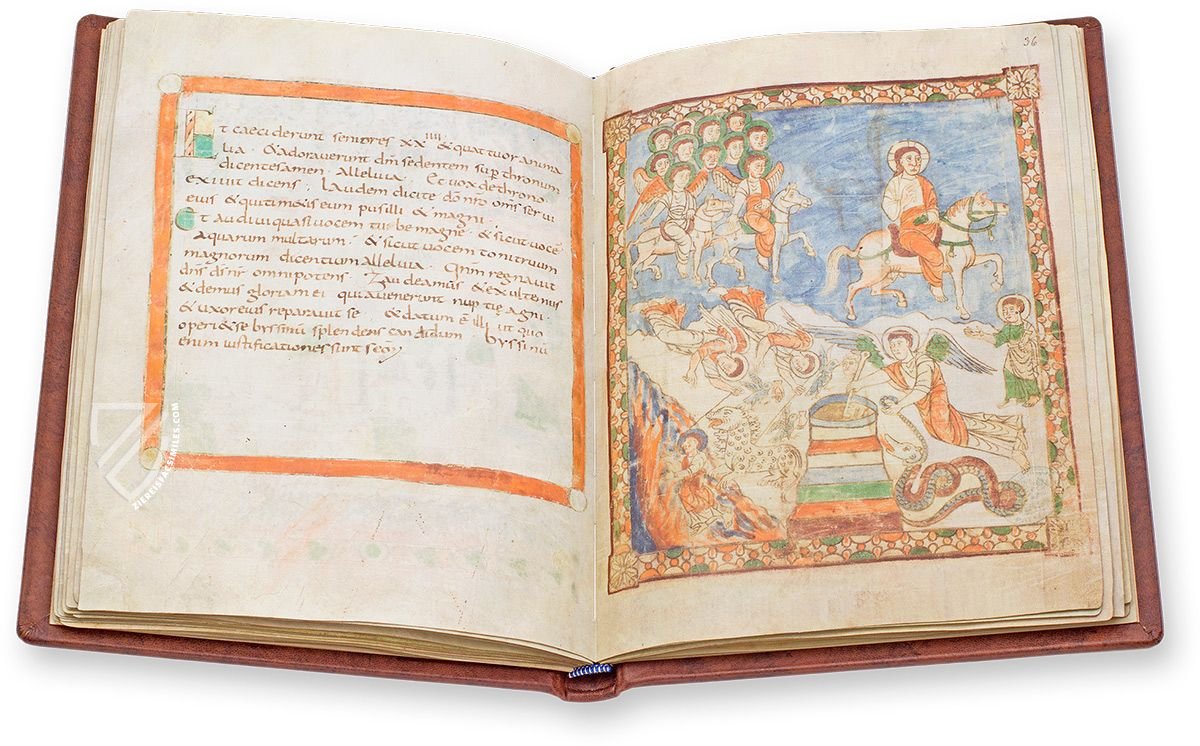 Et caeciderunt seniores XX IIII & quattuor anima
lia · & adoraverunt dm sedentem sup thronum
dicentes amen · Alleluia · Et vox de throno
exivit dicens · Laudem dicite dō nro oms servi
eius & qui timetis eum pusilli & magni ·
Et audivi quasi vocem tube magne · & sicut vocē
aquarum multarum · & sicut vocem tonitruum
magnorum dicentium alleluia · Qnm regnavit
dns ds nr omnipotens · Gaudeamus & exultemus
& demus gloriam ei quia venerunt nuptię agni ·
& uxor eius preparavit se & datum ē illi ut quo
operi& se byssinū splendens candidum byssinū
enim iustificationes sunt scōꝝ
36
ZIEREISFACSIMILES.COM